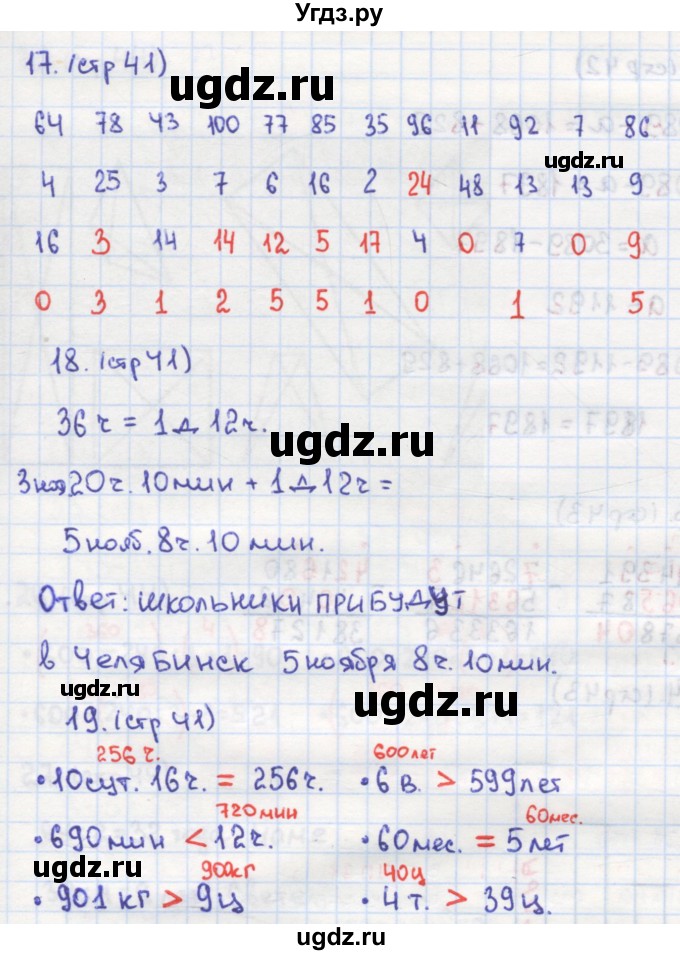 Угдз.ру
17. (стр 41)
ugdz.ru
64 78 43 100 77 85 35 96 11 92 7 86
ugdz.ru
4 25 3 7 6 16 2 24 48 13 13 9
16 3 14 14 12 5 17 4 0 7 0 9
0 3 1 2 5 5 1 0 1 5
ugdz.ru
18. (стр 41)
36 ч = 1 д 12 ч.
ugdz.ru
3 ноя. 20 ч. 10 мин + 1 д 12 ч =
5 нояб. 8 ч. 10 мин.
Ответ: школьники прибудут
в Челябинск 5 ноября 8 ч. 10 мин.
ugdz.ru
ugdz.ru
19. (стр 41)
256 ч. 600 лет
• 10 сут. 16 ч. = 256 ч. • 6 в. > 599 лет
720 мин 60 мес.
• 690 мин < 12 ч. • 60 мес. = 5 лет
ugdz.ru
900 кг 40 ц
• 901 кг > 9 ц • 4 т. > 39 ц.
ugdz.ru